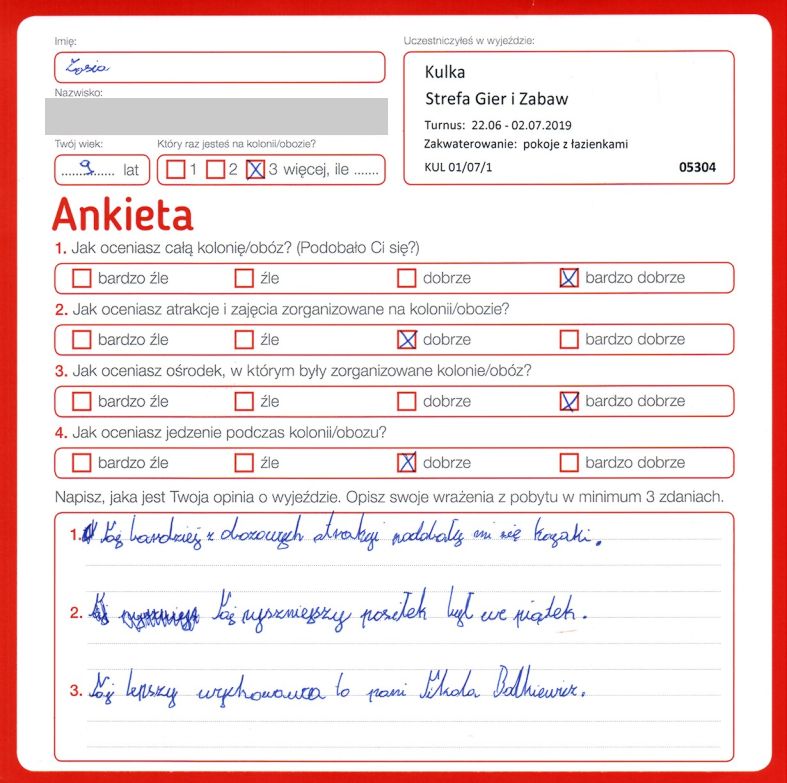 Imię:
Zosia
Nazwisko:
Twój wiek:
9 lat
Który raz jesteś na kolonii/obozie?
1 2 3 więcej, ile .......
Uczestniczyłeś w wyjeździe:
Kulka
Strefa Gier i Zabaw
Turnus: 22.06 - 02.07.2019
Zakwaterowanie: pokoje z łazienkami
KUL 01/07/1 05304
Ankieta
1. Jak oceniasz całą kolonię/obóz? (Podobało Ci się?)
bardzo źle źle dobrze bardzo dobrze
2. Jak oceniasz atrakcje i zajęcia zorganizowane na kolonii/obozie?
bardzo źle źle dobrze bardzo dobrze
3. Jak oceniasz ośrodek, w którym były zorganizowane kolonie/obóz?
bardzo źle źle dobrze bardzo dobrze
4. Jak oceniasz jedzenie podczas kolonii/obozu?
bardzo źle źle dobrze bardzo dobrze
Napisz, jaka jest Twoja opinia o wyjeździe. Opisz swoje wrażenia z pobytu w minimum 3 zdaniach.
1. Naj bardziej z obozowych atrakcji poddbały mi się kajaki.
2. Naj pyszniejszy posiłek był we piątek.
3. Naj lepszy wychowawca to pani